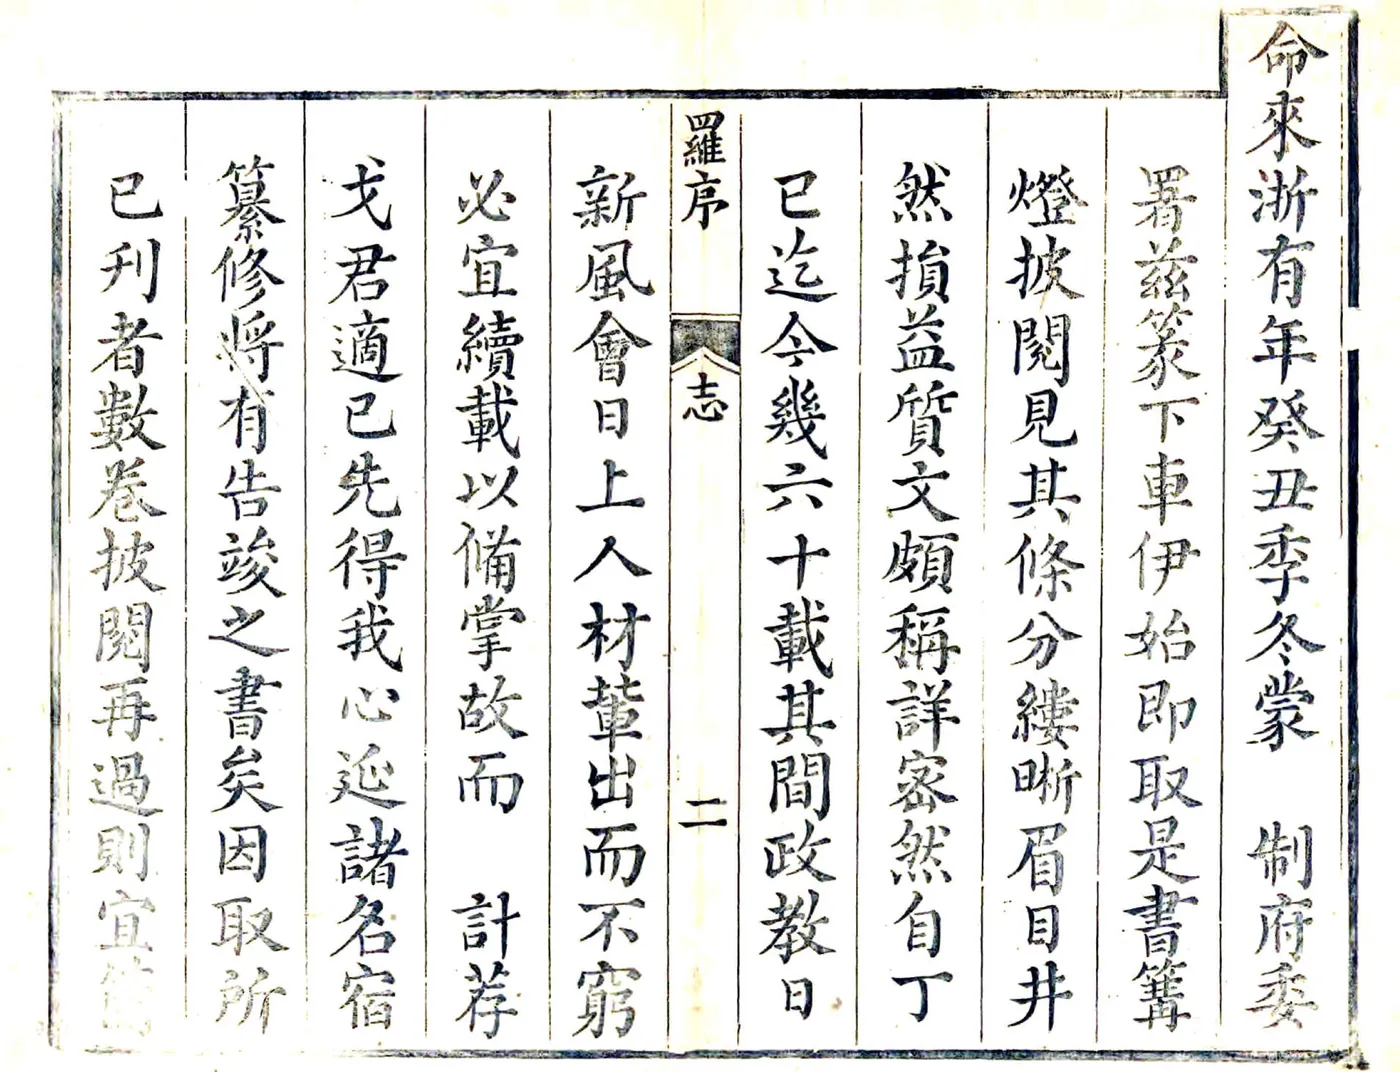 命來浙有年癸丑季冬蒙　制府委
署茲篆下車伊始即取是書篝
燈披閱見其條分縷晰眉目井
然損益質文頗稱詳密然自丁
已迄今幾六十載其間政教日
羅序　志　二
新風會日上人材輩出而不窮
必宜續載以備掌故而　計荐
戈君適已先得我心延諸名宿
纂修將有告竣之書矣因取所
已刊者數卷披閱再過則宜